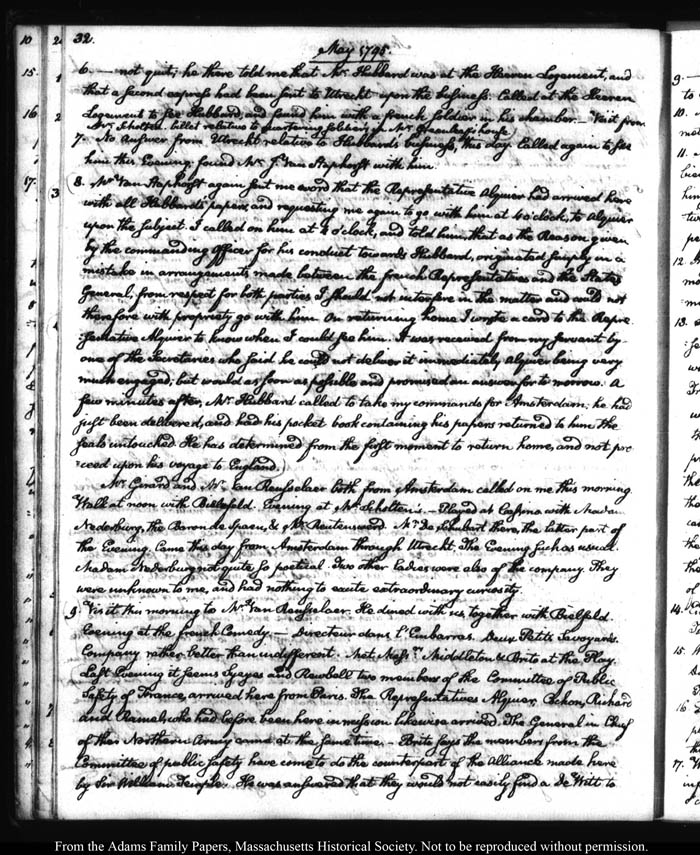 32.
May 1795.
6. — not quit; he there told me that Mr. Hubbard was at the Heeren Logement, and
that a second express had been sent to Utrecht upon the business. Called at the Heeren
Logement to see Hubbard, and found him with a french soldier in his chamber. — Visit from
Mr. Scholten. billet relative to quartering soldiers in Mr. house
7. No Answer from Utrecht relative to Hubbard's business, this day. Called again to see
him this Evening. found Mr. J. Van Staphorst with him.
8. Mr. Van Staphorst again sent me word that the Representative Alquier had arrived here
with all Hubbard's papers, and requesting me again to go with him at 4 o'clock, to Alquier
upon the subject. I called on him at 4 o'clock, and told him, that as the Reason given
by the commanding officer for his conduct towards Hubbard, originated simply in a
mistake in arrangements made between the french Representatives and the States
General, from respect for both parties I should not interfere in the matter and could not
therefore with propriety go with him. On returning home I wrote a card to the Repre
:sentative Alquier to know when I could see him. It was received from my servant by
one of the Secretaries who said he could not deliver it immediately Alquier being very
much engaged; but would as soon as possible and promised an answer for to morrow. A
few minutes after, Mr. Hubbard called to take my commands for Amsterdam; he had
just been delivered, and had his pocket book containing his papers returned to him the
seals untouched. He has determined from the first moment to return home, and not pro
:ceed upon his voyage to England.
Mr. Gerard and Mr. Van Rensselaer both from Amsterdam called on me this morning.
Walk at noon with Bielefeld. Evening at Mr. Scholten's. — Played at Cassino with Madam
Nederburg, the Baron de Spaen, & Mr. Reutersward. Mr. De Schubert there, the latter part of
the Evening. Came this day from Amsterdam through Utrecht. The Evening such as usual.
Madam Nederburg not quite so poetical. Two other ladies were also of the company. They
were unknown to me, and had nothing to excite extraordinary curiosity.
9. Visit this morning to Mr. Van Rensselaer. He dined with us, together with Bielfeld.
Evening at the french Comedy. — Directeur dans l'Embarras. Deux Petits Savoyards.
Company rather better than indifferent. Met Messrs. Middleton & Brito at the Play.
Last Evening it seems Syeyes and Rewbell two members of the Committee of Public
Safety of France, arrived here from Paris. The Representatives Alquier, Cochon, Richard
and Ramel, who had before been here in mission likewise arrived. The General in Chief
of the Northern Army came at the same time. — Brito says the members from the
Committee of public safety have come to do the counterpart of the Alliance made here
by Sir William Temple. He was answered that they would not easily find a De Witt to
10
15.
16
17.
2
1
2
3
9. —
10.
11.
12
13.
14.
15.
16
17.
From the Adams Family Papers, Massachusetts Historical Society. Not to be reproduced without permission.